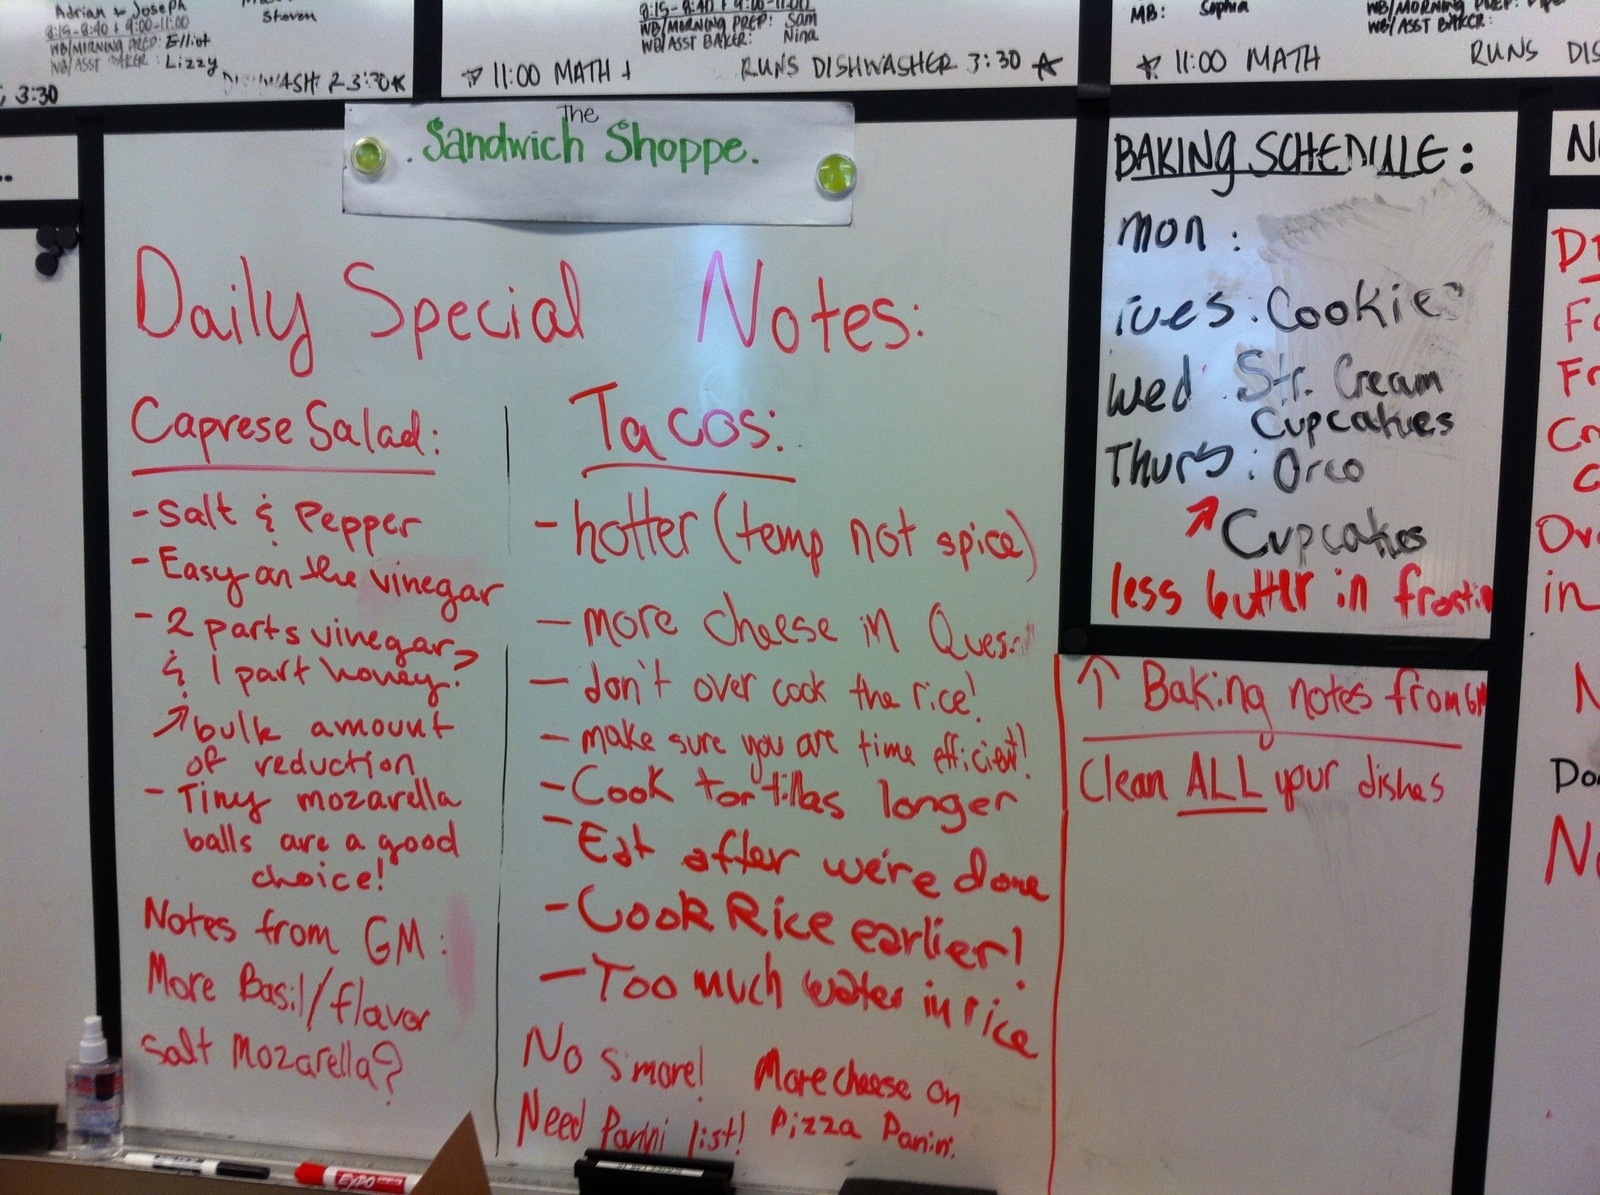 Adrian + Joseph
Steven
8:15-8:40 + 9:00-11:00
WB/MORNING PREP: Elliot
WB/ASST BAKER: Lizzy
3:30
8:15-8:40 + 9:00-11:00
WB/MORNING PREP: Sam
WB/ASST BAKER: Nina
11:00 MATH +
RUNS DISHWASHER 3:30
MB: Sophia
WB/MORNING PREP:
WB/ASST BAKER:
11:00 MATH
RUNS DIS
The
. Sandwich Shoppe.
Daily Special Notes:
Caprese Salad:
- Salt & Pepper
- Easy on the vinegar
- 2 parts vinegar
& 1 part honey?
↗ bulk amount
of reduction
- Tiny mozarella
balls are a good
choice!
Notes from GM:
More Basil/flavor
Salt Mozarella?
Tacos:
- hotter (temp not spice)
- more cheese in Ques.
- don't over cook the rice!
- make sure you are time efficient!
- Cook tortillas longer
- Eat after we're done
- Cook Rice earlier!
- Too much water in rice
No S'more! More cheese on
Need Panini list! Pizza Panini.
BAKING SCHEDULE:
Mon:
Tues: Cookies
Wed Str. Cream
Cupcakes
Thurs: Oreo
↗ Cupcakes
less butter in frostin
↑ Baking notes from GM
Clean ALL your dishes
Fr
in
Do
EXPO